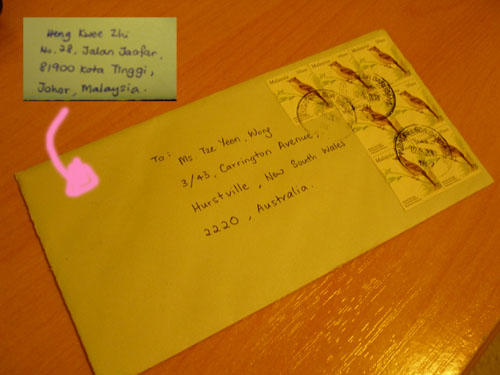 Heng Kwee Zhi
No. 28, Jalan Jaafar,
81900 Kota Tinggi,
Johor, Malaysia.
To: Ms. Tze Yeen, Wong
3/43, Carrington Avenue,
Hurstville, New South Wales
2220, Australia.
Malaysia
Malaysia